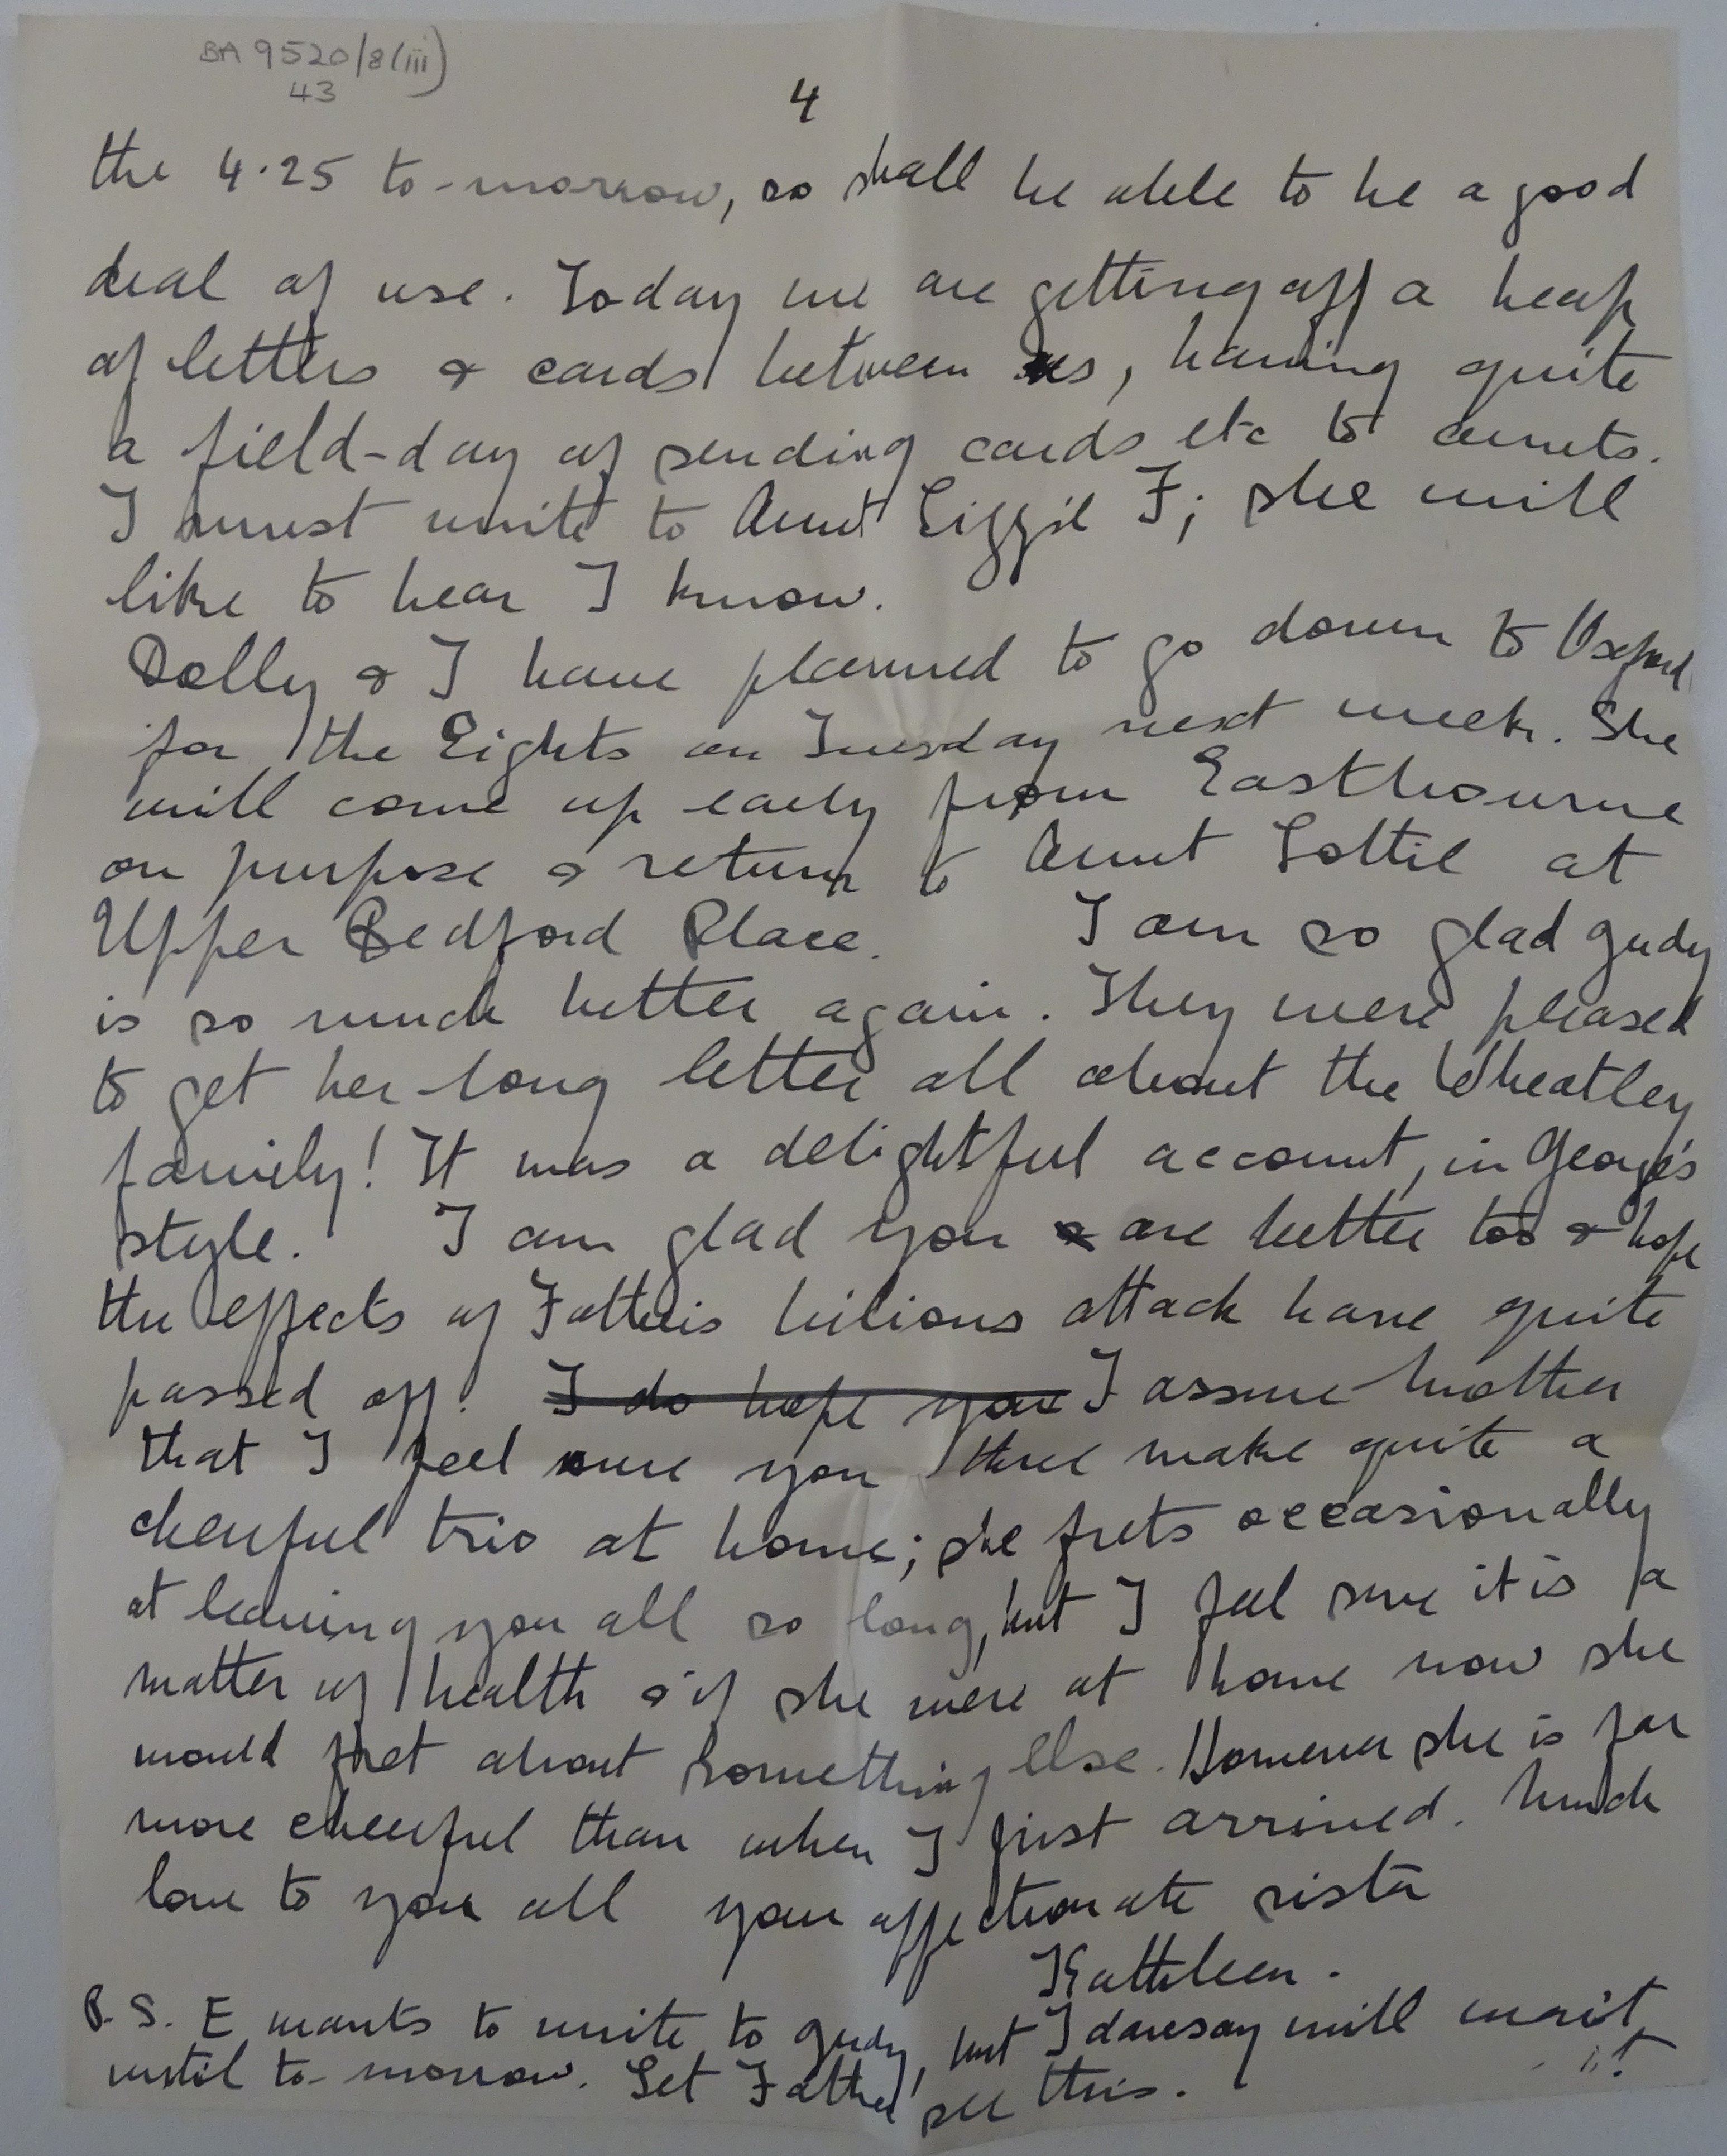 BA 9520/8(iii)
43
4
the 4·25 to-morrow, so shall be able to be a good
deal of use. Today we are getting off a heap
of letters & cards between us, having quite
a field-day of sending cards etc to aunts.
I must write to Aunt Lizzie F; she will
like to hear I know.
Dolly & I have planned to go down to Oxford
for the Eights on Tuesday next week. She
will come up early from Eastbourne
on purpose & return to Aunt Lottie at
Upper Bedford Place. I am so glad Judy
is so much better again. They were pleased
to get her long letter all about the Wheatley
family! It was a delightful account, in George's
style. I am glad you are better too & hope
the effects of Father's bilious attack have quite
passed off. I do hope you I assure Mother
that I feel sure you three make quite a
cheerful trio at home; she frets occasionally
at leaving you all so long, but I feel sure it is a
matter of health & if she were at home now she
would fret about something else. However she is far
more cheerful than when I first arrived. Much
love to you all your affectionate sister
Kathleen.
P.S. E wants to write to Judy, but I daresay will wait
until to-morrow. Let Father see this.